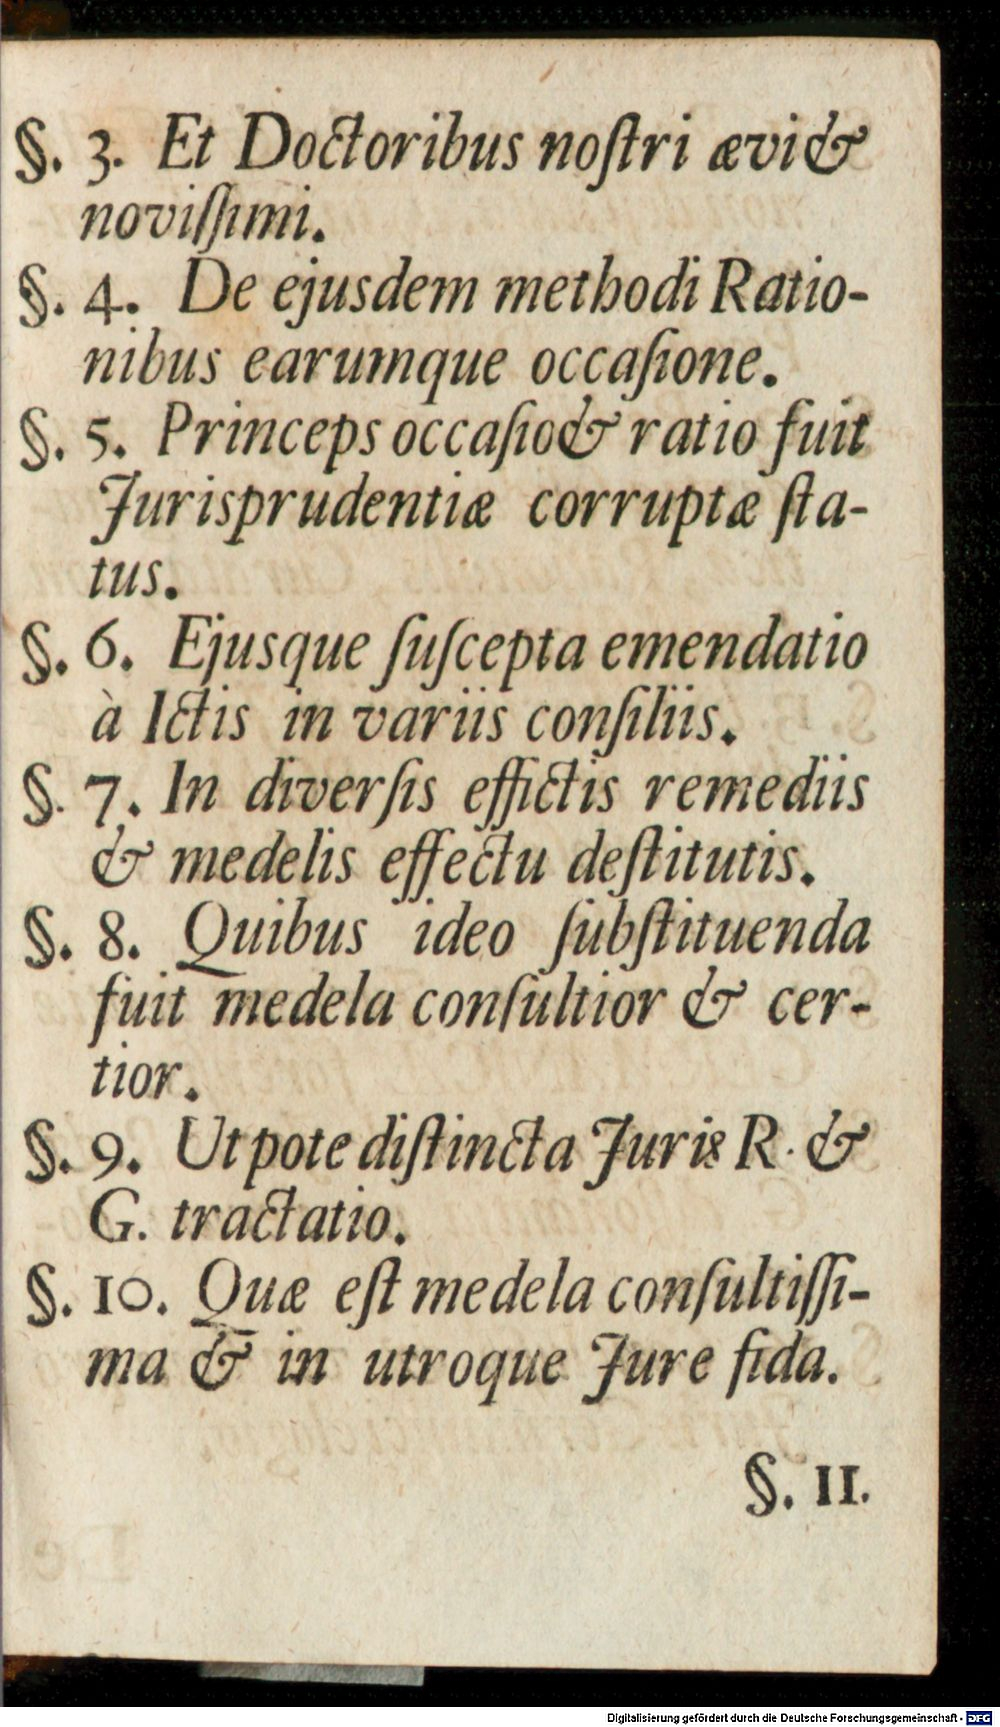 §. 3. Et Doctoribus noſtri ævi &
noviſſimi.
§. 4. De ejusdem methodi Ratio-
nibus earumque occaſione.
§. 5. Princeps occaſio & ratio fuit
Jurisprudentiæ corruptæ ſta-
tus.
§. 6. Ejusque ſuſcepta emendatio
à Ictis in variis conſiliis.
§. 7. In diverſis effictis remediis
& medelis effectu deſtitutis.
§. 8. Quibus ideo ſubſtituenda
fuit medela conſultior & cer-
tior.
§. 9. Utpote diſtincta Juris R. &
G. tractatio.
§. 10. Quæ eſt medela conſultiſſi-
ma & in utroque Jure fida.
§. 11.
Digitalisierung gefördert durch die Deutsche Forschungsgemeinschaft - DFG